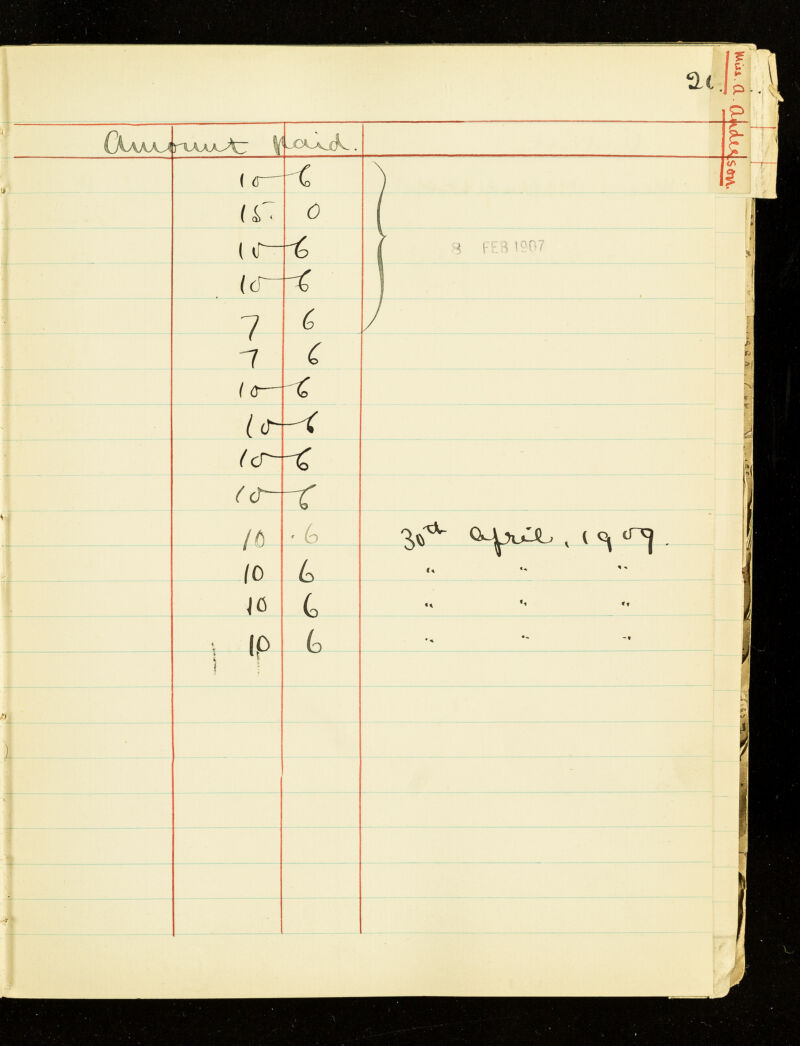 Miss. A. Anderson.
Amount paid.
10 6
15. 0
10 6
10 6
8 FEB 1907
7 6
7 6
10 6
10 6
10 6
10 6
10 . 6 30th April, 1909.
10 6 " " "
10 6 " " "
10 6 " " "